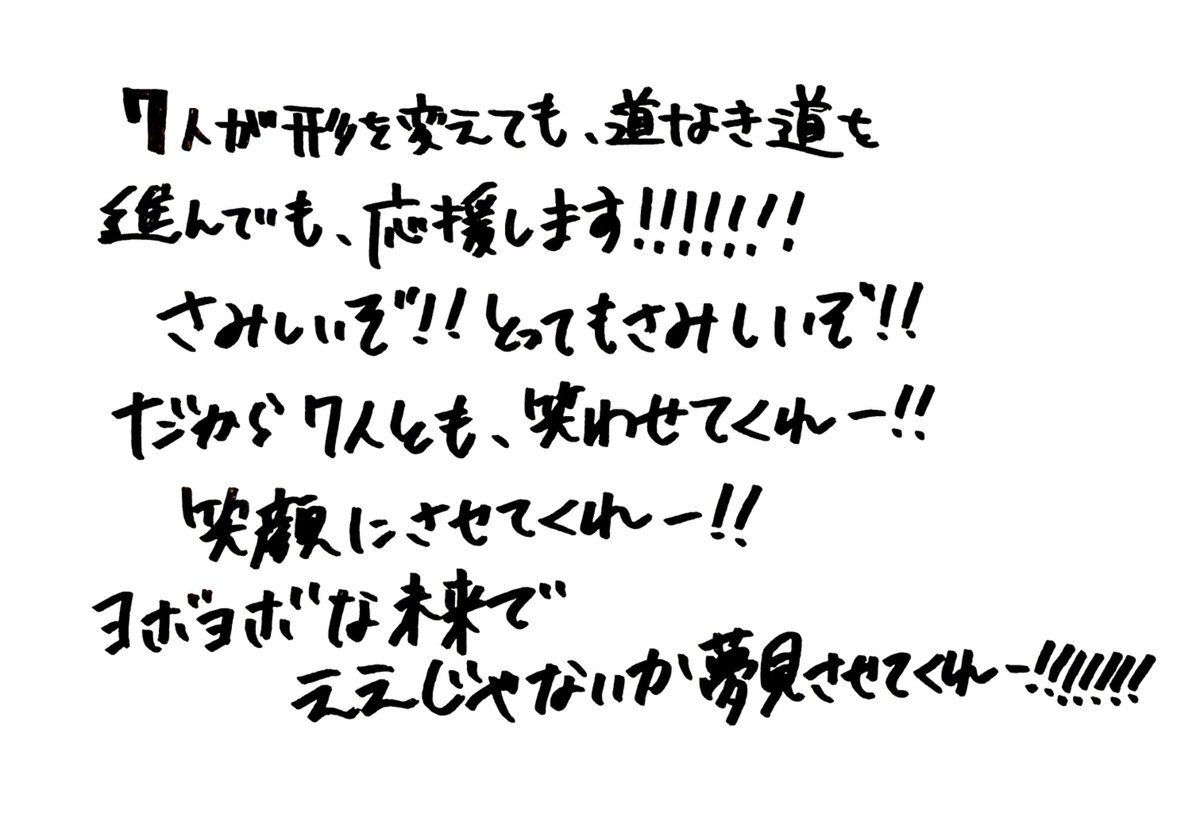 7人が形を変えても、道なき道を
進んでも、応援します!!!!!!!
さみしいぞ!!とってもさみしいぞ!!
だから7人とも、笑わせてくれー!!
笑顔にさせてくれー!!
ヨボヨボな未来で
ええじゃないか夢見させてくれー!!!!!!!